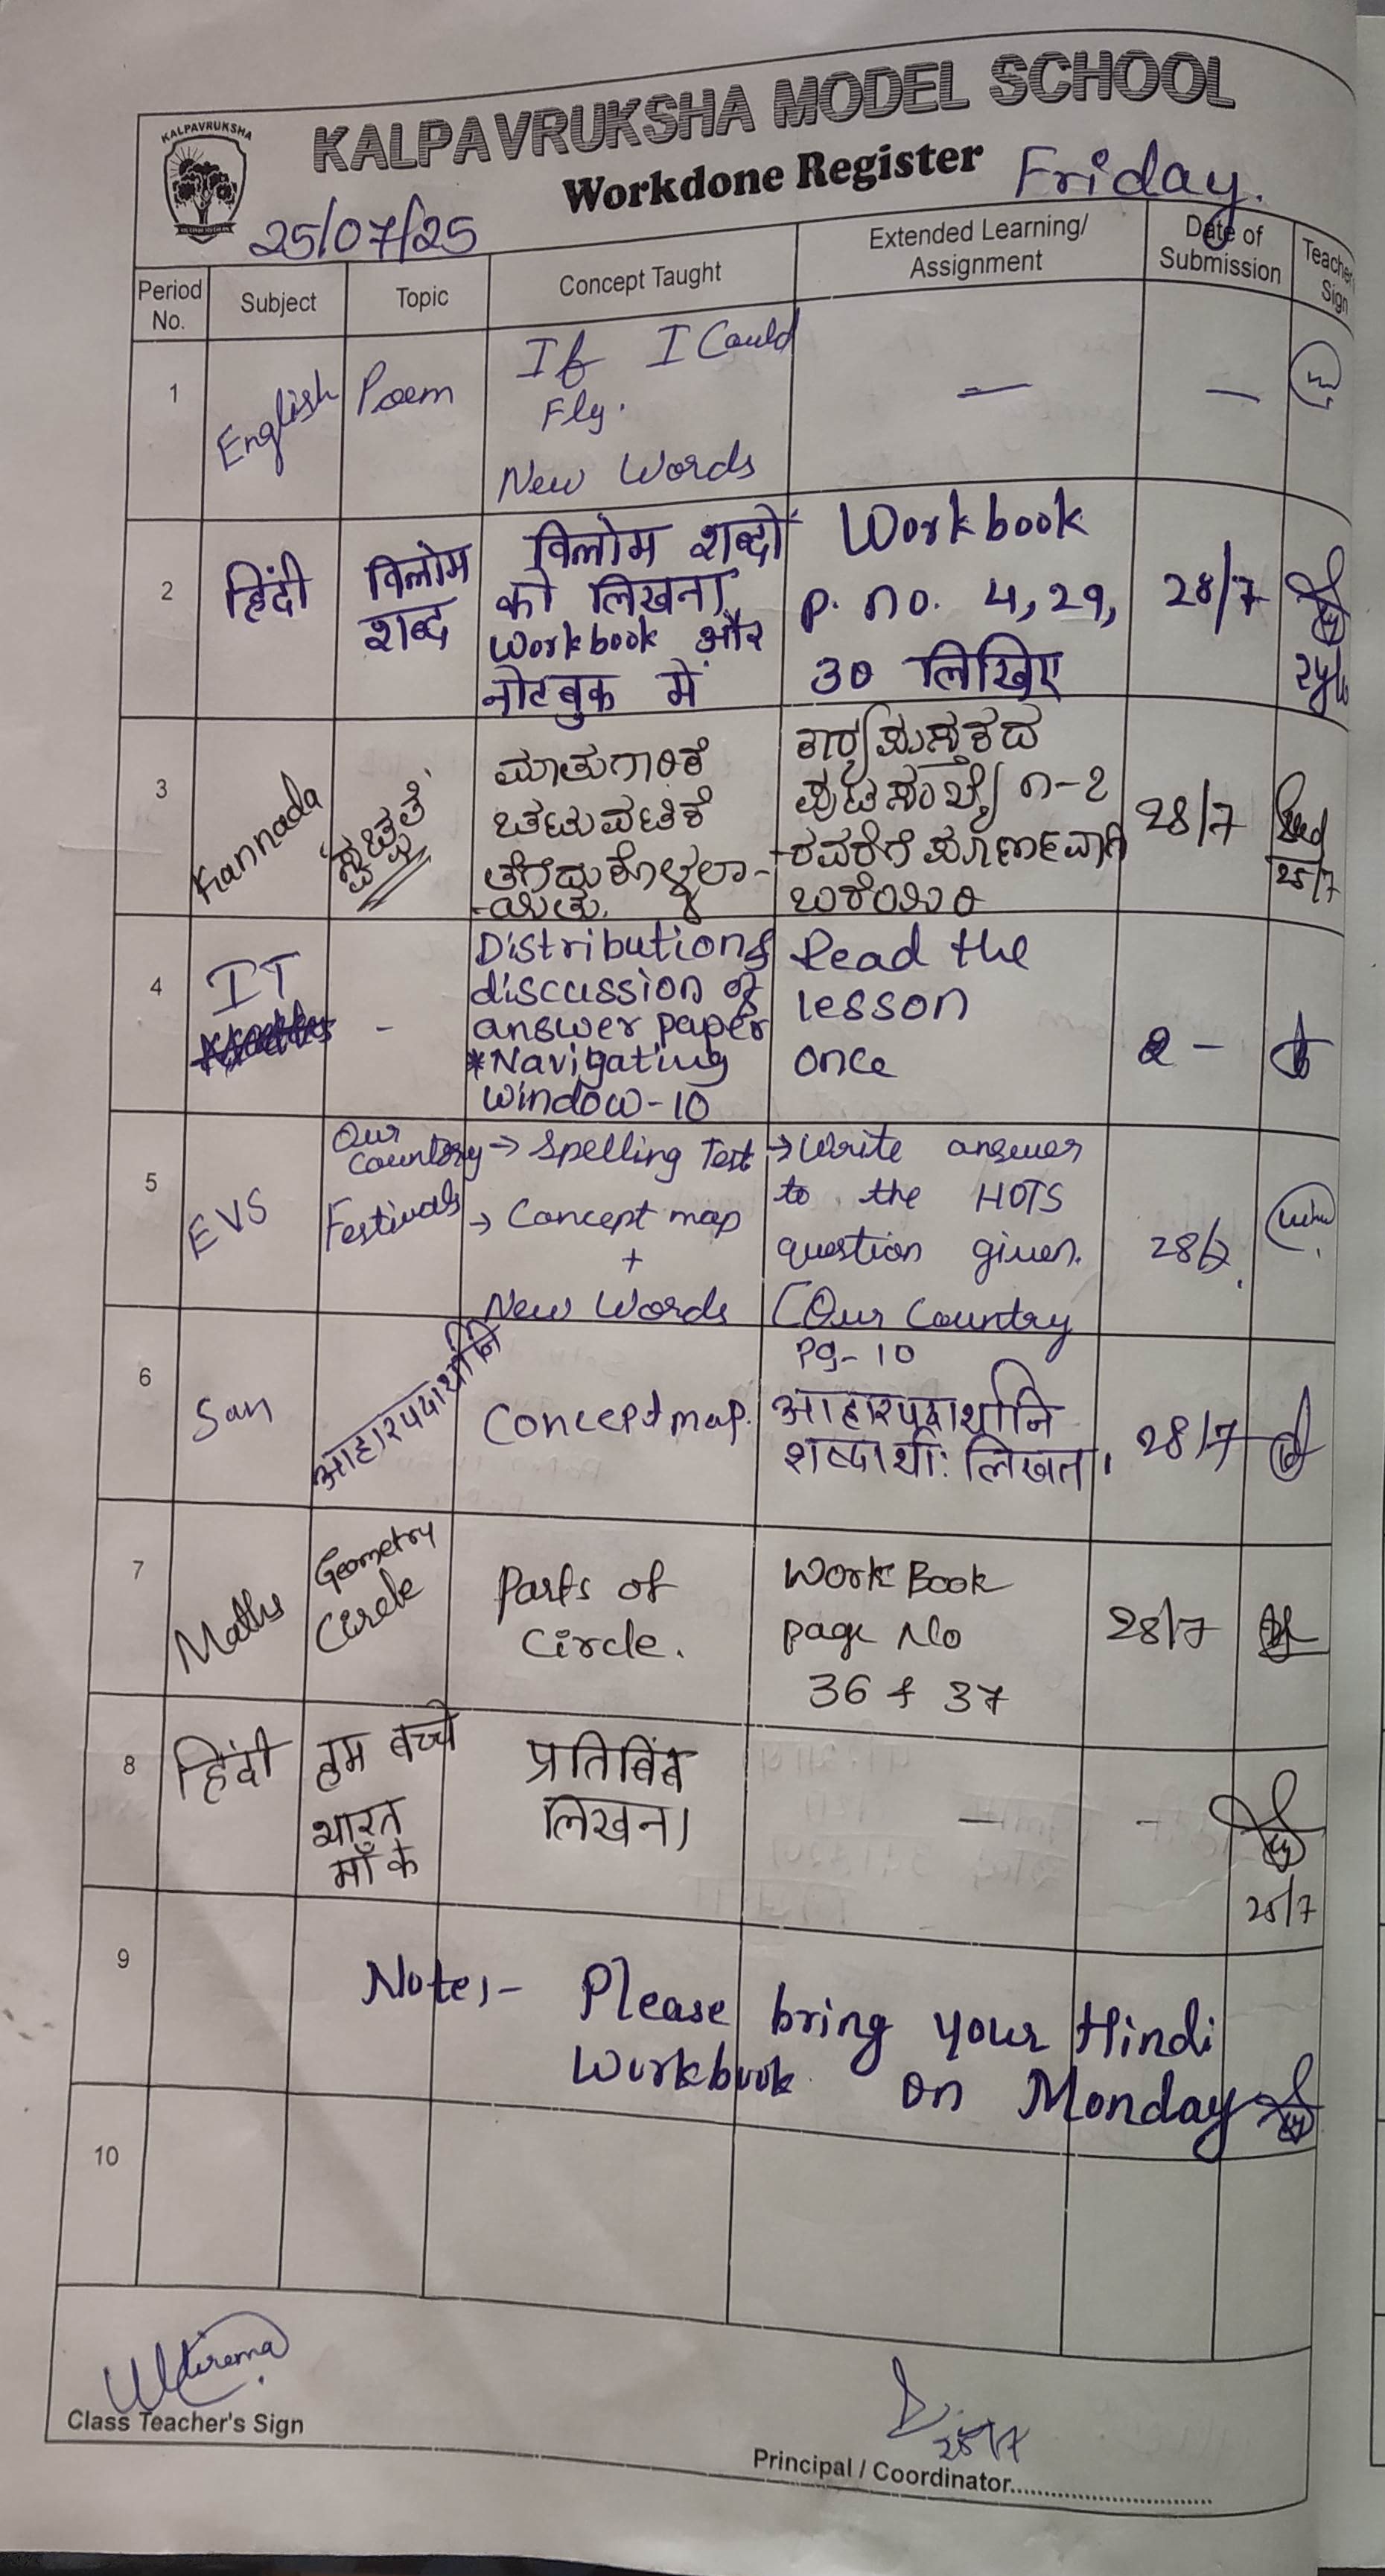 KALPAVRUKSHA
KALPAVRUKSHA MODEL SCHOOL
Workdone Register Friday.
25/07/25
Period No.
Subject
Topic
Concept Taught
Extended Learning/
Assignment
Date of
Submission
Teacher
Sign
1
English
Poem
If I Could
Fly.
New Words
—
—
2
हिंदी
विलोम
शब्द
विलोम शब्दों
को लिखना
workbook और
नोटबुक में
Workbook
p. no. 4, 29,
30 लिखिए
28/7
3
Kannada
ಸ್ವಚ್ಛತೆ
ಮಾತುಗಾರಿಕೆ
ಚಟುವಟಿಕೆ
ತೆಗೆದುಕೊಳ್ಳಲಾ-
-ಯಿತು.
ಕಾರ್ಯಪುಸ್ತಕದ
ಪುಟಸಂಖ್ಯೆ
ಬರೆಯಿರಿ
28/7
25/7
4
IT
-
Distribution &
discussion of
answer paper
*Navigating
window-10
Read the
lesson
once
-
5
EVS
Our
Country
Festivals
→ Spelling Test
→ Concept map
+
New Words
→ Write answer
to the HOTS
question given.
(Our Country
Pg-10
28/7.
6
San
आहारपदार्थानि
Concept map.
आहारपदार्थानि
शब्दार्थाः लिखत।
28/7
7
Maths
Geometry
Circle
Parts of
Circle.
Work Book
page No
36 & 37
28/7
8
हिंदी
हम बच्चे
भारत
माँ के
प्रतिबिंब
लिखना
—
-
25/7
9
Note:- Please bring your Hindi
Workbook on Monday
10
Class Teacher's Sign
25/7
Principal / Coordinator..............................